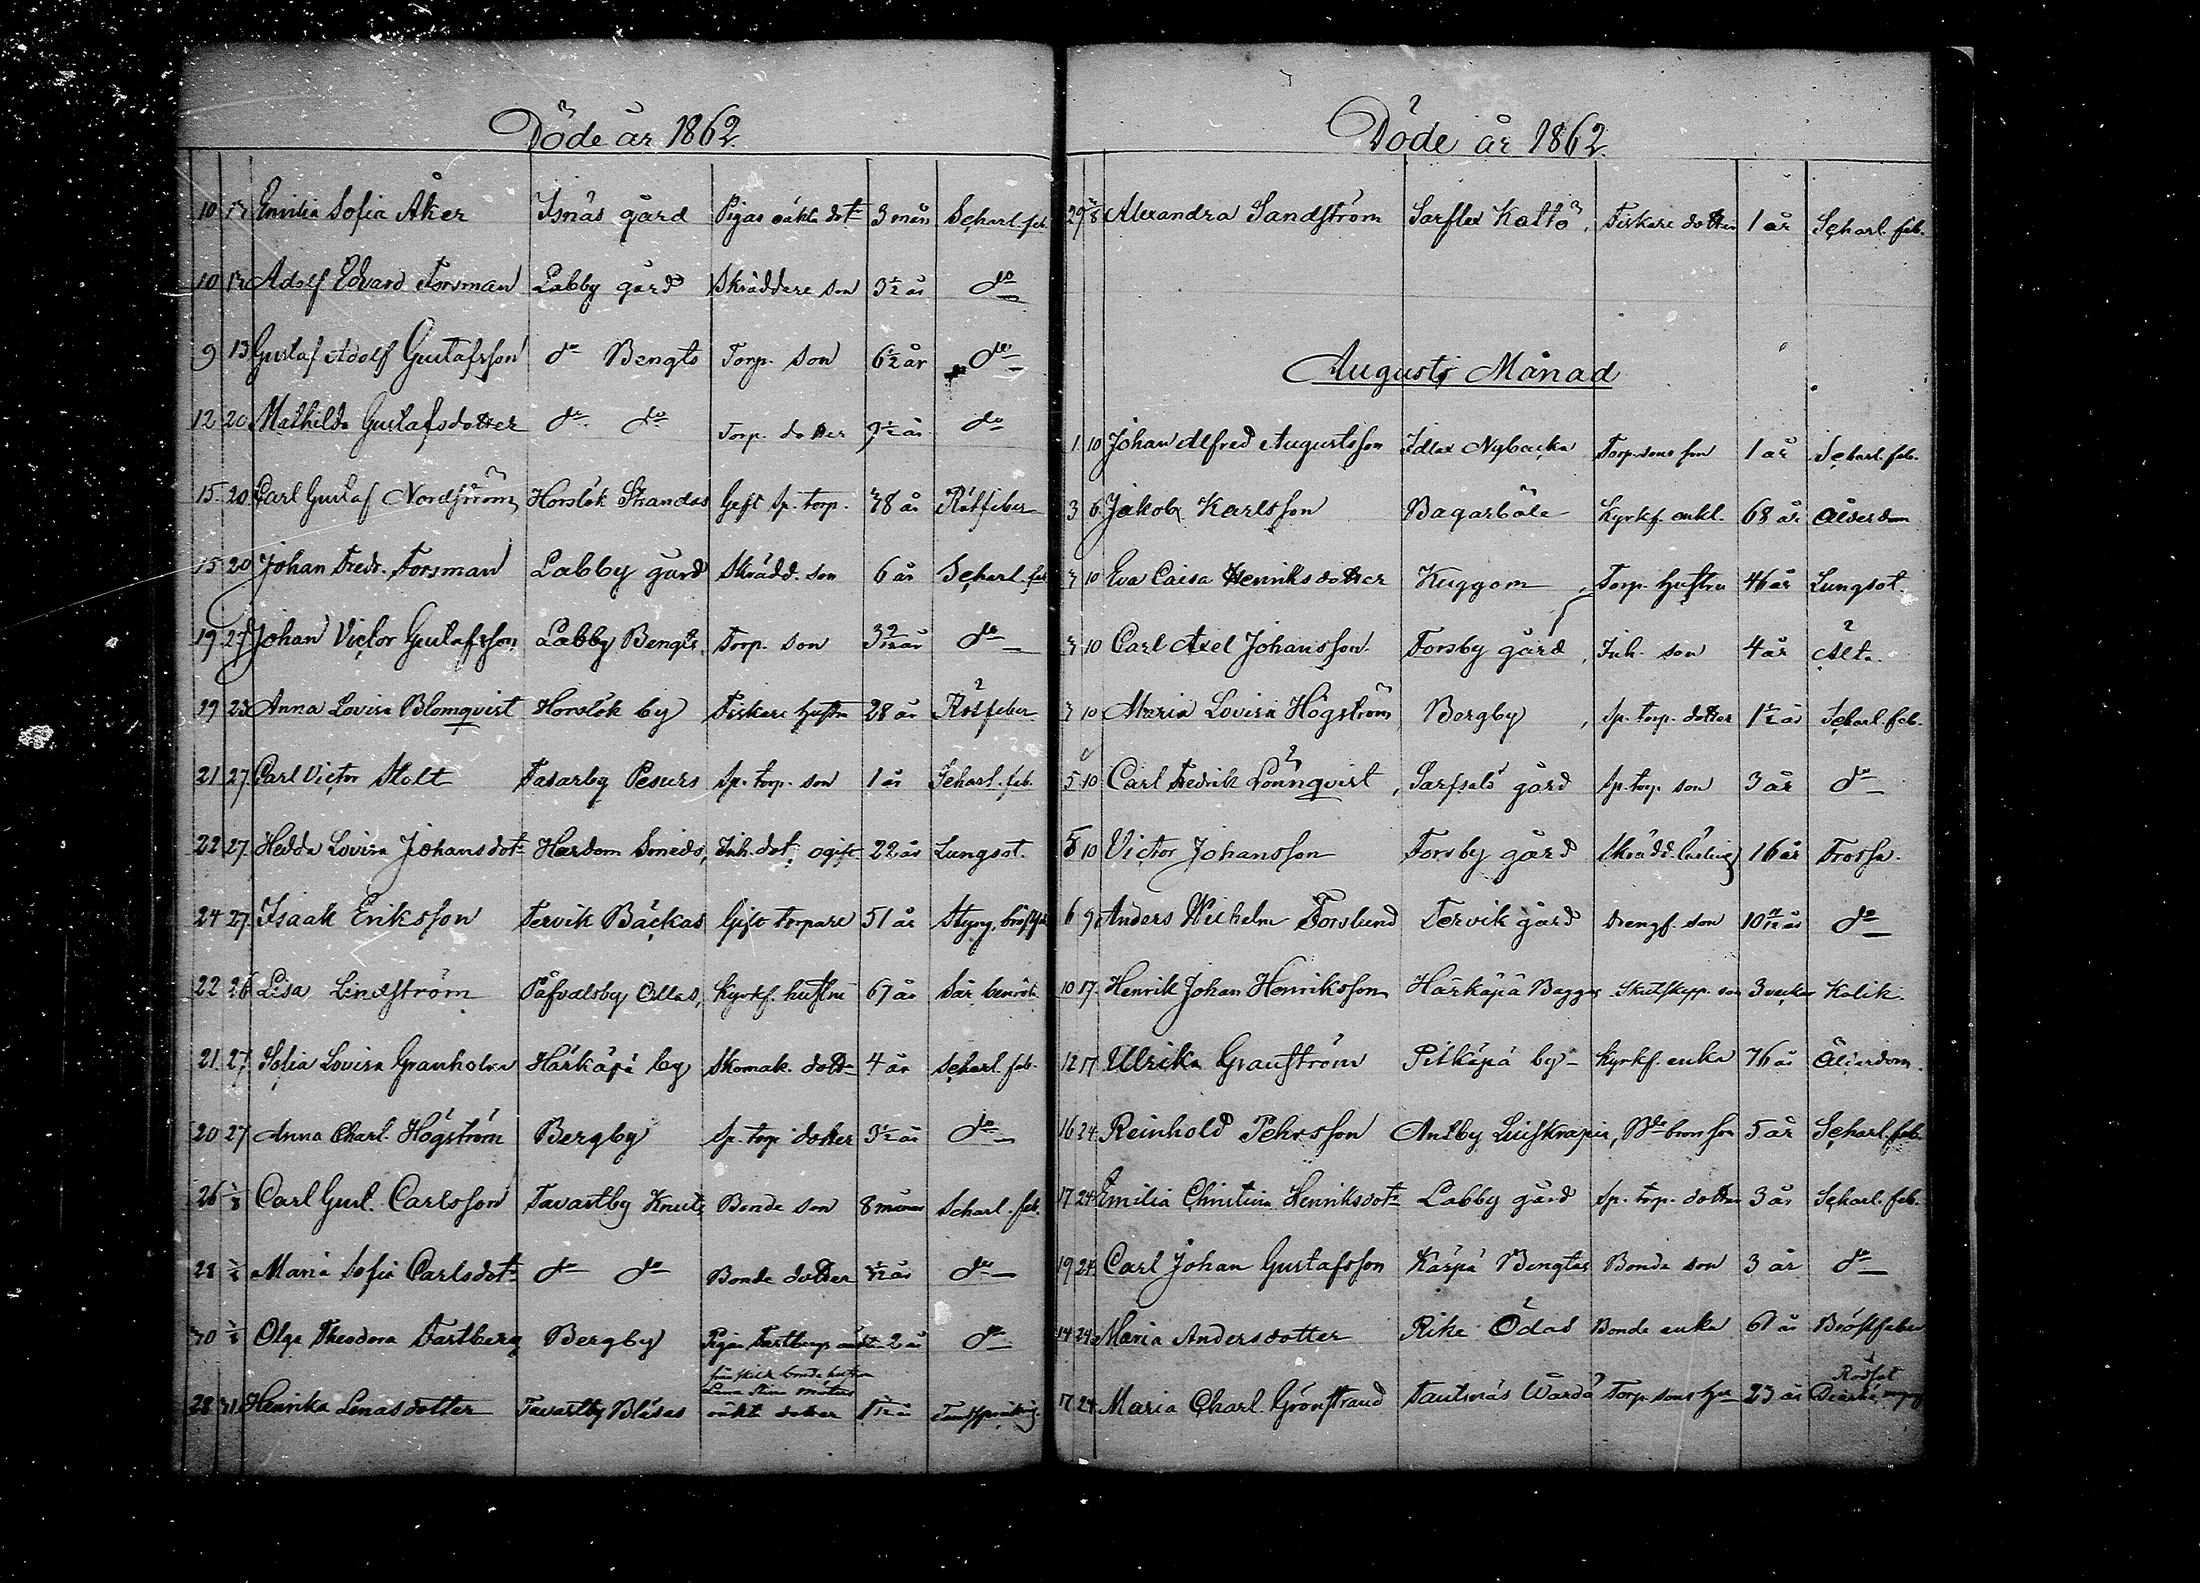 Döde år 1862.
10 13 Emilia Sofia Åker Isnäs gård Pigas oäkta dotr 3 mån Scharl. feb.
10 13 Adolf Edvard Forsman Labby gård Skräddare son 3½ år do
9 13 Gustaf Adolf Gustafsson do Bengts Torp. son 6½ år do
12 20 Mathilda Gustafsdotter do do Torp. dotter år do
15 20 Carl Gustaf Nordström Horslök Strandas Gift Sp. torp. 78 år Rötfeber
15 20 Johan Fredr. Forsman Labby gård Skrädd. son 6 år Scharl. feb
19 27 Johan Victor Gustafsson Labby Bengts Torp. son 3 9/12 år do
19 23 Anna Lovisa Blomqvist Horslök by Fiskare hustru 28 år Rötfeber
21 27 Carl Victor Stolt Tasarby Pesurs Sp. torp. son 1 år Scharl. feb.
22 27 Hedda Lovisa Johansdotr Hardom Smeds, Inh. dot. ogift 22 år Lungsot.
24 27 Isaak Eriksson Tervik Bäckas Gift torpare 51 år
22 26 Lisa Lindström Påfvalsby Ollas, Kyrkf. hustru 67 år
21 27 Sofia Lovisa Granholm Härkäpä by Skomak. dotr 4 år Scharl. feb.
20 27 Anna Charl. Högström Bergby Sp. torp dotter 3½ år do
26 1/8 Carl Gust. Carlsson Tavastby Knuts Bonde son 8 månad Scharl. feb.
28 Maria Sofia Carlsdotr do do Bonde dotter år do
30 Olga Theodora Fastberg Bergby Pigan Fastbergs oäkta 2 år do
frånskild bonde hustru
Lena Stina
28 31 Henrika Lenasdotter Tavastby Blåsas oäkta dotter
Döde år 1862.
29 3/8 Alexandra Sandström Sarflax Kattö, Fiskare dotter 1 år Scharl. feb.
Augusti Månad
1 10 Johan Alfred Augustsson Idlax Nybacka Torp.sons son 1 år Scharl. feb.
3 6 Jakob Karlsson Bagarböle Kyrkf. enkl. 68 år Ålderdom
3 10 Eva Caisa Henriksdotter Kuggom Torp. hustru 46 år Lungsot.
3 10 Carl Axel Johansson Forsby gård, Inh. son 4 år Ält.
3 10 Maria Lovisa Högström Bergby, Sp. torp. dotter 1½ år Scharl. feb.
5 10 Carl Fredrik Lönnqvist, Sarfsalö gård Sp. torp. son 3 år do
5 10 Victor Johansson Forsby gård Skrädd. lärling 16 år Frossa.
6 9 Anders Wilhelm Forslund Tervik gård Drengs. son 10 år do
10 17 Henrik Johan Henriksson Härkäpä Baggas Skutskepp. son 3 veckor Kolik.
12 17 Ulrika Granström Pitkäpä by Kyrkf. enka 76 år Ålderdom.
16 24 Reinhold Pehrsson Antby son 5 år Scharl. feb.
17 24 Emilia Christina Henriksdotr Labby gård Sp. torp. dotter 3 år Scharl. feb.
19 24 Carl Johan Gustafsson Käspä Bengtas Bonde son 3 år do
14 24 Maria Andersdotter Rike Ödas Bonde enka 67 år Bröstfeber
Rödsot
17 24 Maria Charl. Grönstrand Tautsnäs Wårdö Torp. sons hu 23 år